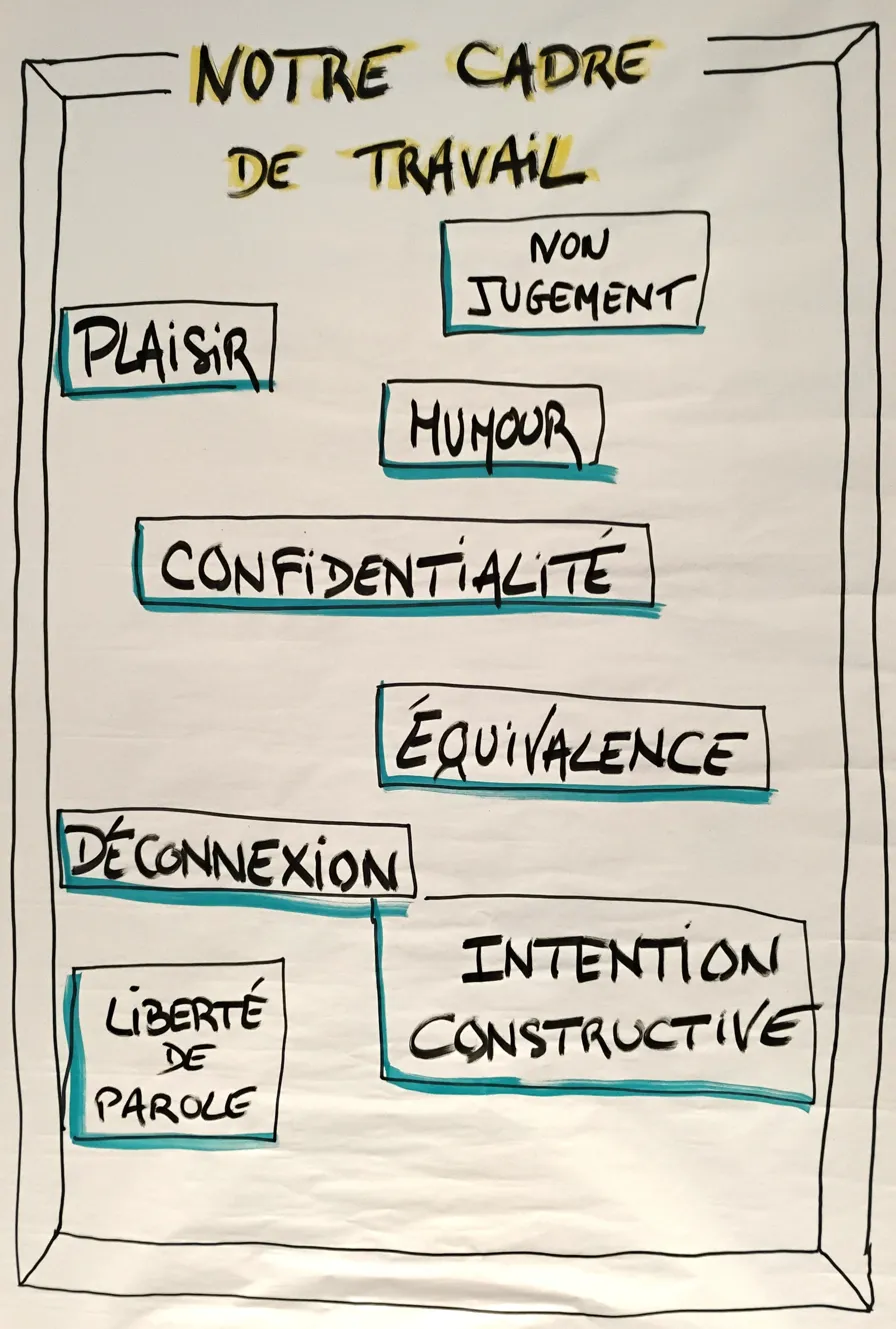 NOTRE CADRE
DE TRAVAIL
NON
JUGEMENT
PLAISIR
HUMOUR
CONFIDENTIALITÉ
ÉQUIVALENCE
DÉCONNEXION
INTENTION
CONSTRUCTIVE
LIBERTÉ
DE
PAROLE